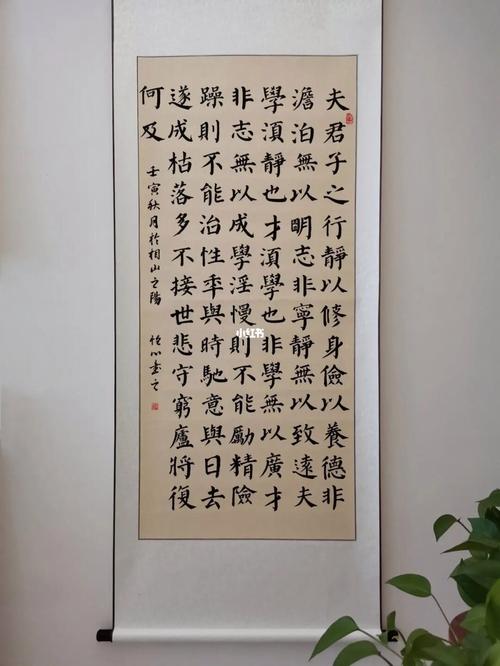 夫君子之行靜以修身儉以養德非
澹泊無以明志非寧靜無以致遠夫
學湏靜也才湏學也非學無以廣才
非志無以成學淫慢則不能勵精險
躁則不能治性年與時馳意與日去
遂成枯落多不接世悲守窮廬將復
何及
壬寅秋月於相山之陽
心書之
小红书